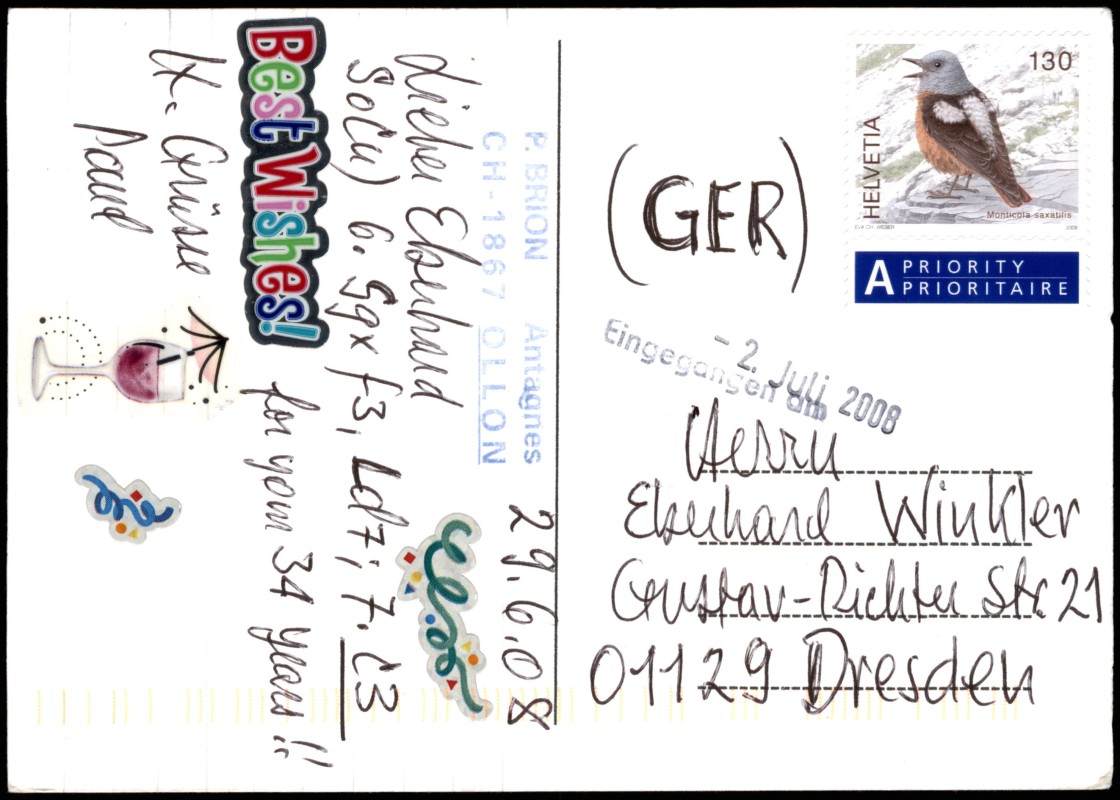 P. BRION Antagnes
CH-1867 OLLON
29.6.08
Lieber Eberhard
SoCu) 6. Sgx f3, Ld7; 7. C3
Best Wishes!
for your 34 years!!
lx. Grüsse
Paul
130
HELVETIA
Monticola saxatilis
2008
A PRIORITY
PRIORITAIRE
(GER)
- 2. Juli 2008
Eingegangen am
Herrn
Eberhard Winkler
Gustav-Richter Str. 21
01129 Dresden